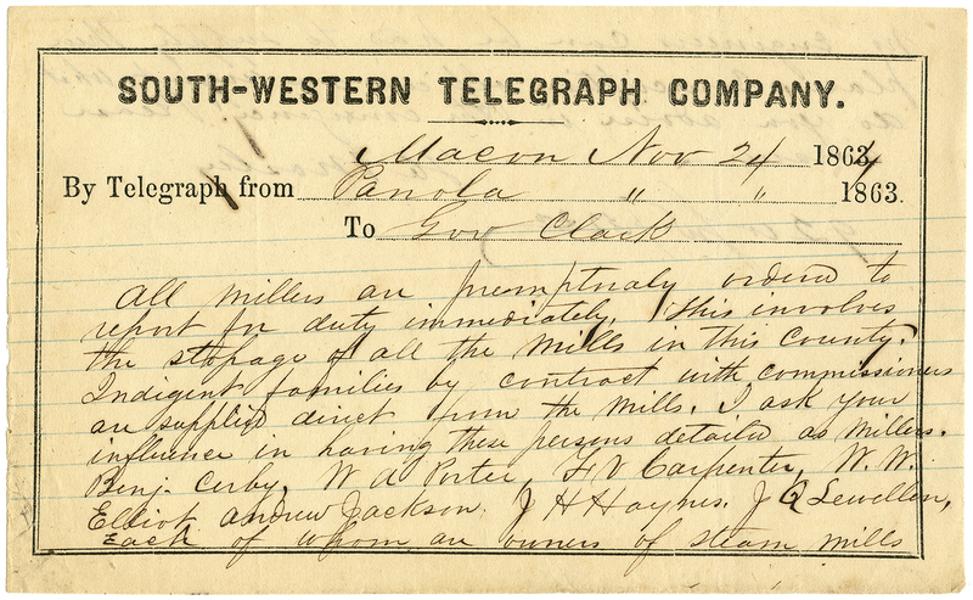 SOUTH-WESTERN TELEGRAPH COMPANY.
Macon Nov 24 1864
By Telegraph from Panola " " 1863.
To Gov Clark
All millers are premptoraly ordered to
report for duty immediately. This involves
the stopage of all the mills in this County.
Indigent families by contract with commissioners
are supplied direct from the mills. I ask your
influence in having these persons detailed as millers.
Benj. Cerby, W A Porter, F V Carpenter, W. W.
Elliot andrew Jackson. J H Haynes. J Q Lewellen,
Each of whom are owners of steam mills